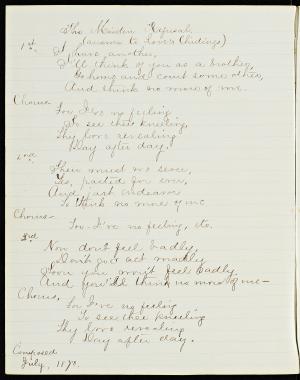 The Maiden Refusal.
(answer to Lover's Chidings)
1st.
I love another,
I'll think of you as a brother,
Go home and court some other,
And think no more of me.
Chorus
For I've no feeling
To see thee kneeling
Thy love revealing
Day after day.
2nd.
Then must we sever,
Go, parted for ever,
And just endeavor
To think no more of me
Chorus-
For I've no feeling, etc.
3rd
Now don't feel badly,
Don't you act madly
Soon you won't feel badly
And you'll think no more of me-
Chorus,
For I've no feeling
To see thee kneeling
Thy love revealing
Day after day.
Composed
July, 1878.